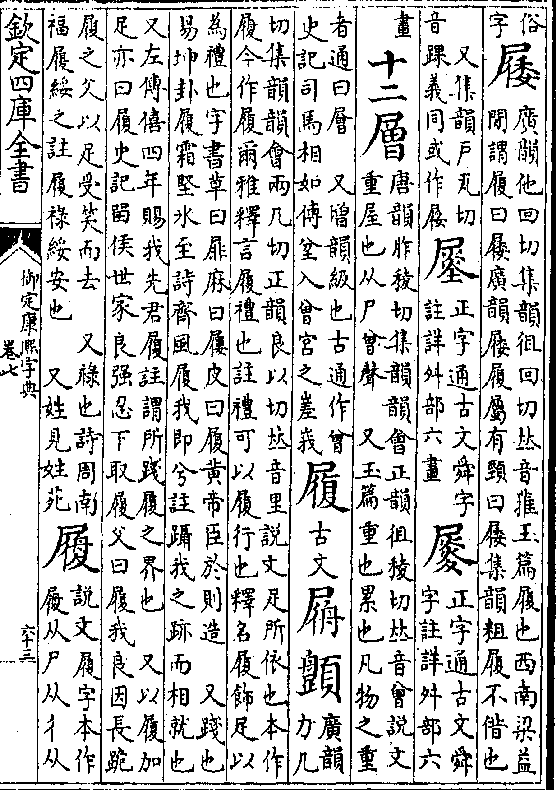 俗
字
廣韻他回切集韻徂回切𠀤音摧玉篇履也西南梁益
閒謂履曰廣韻履屬有頸曰集韻粗履不偕也
又集韻戶瓦切
音踝義同或作
正字通古文舜字
註詳舛部六畫
正字通古文舜
字註詳舛部六
畫
十二
層
唐韻昨稜切集韻韻會正韻徂稜切𠀤音曾說文
重屋也从尸曾聲 又玉篇重也累也凡物之重
者通曰層 又增韻級也古通作曾
史記司馬相如傳坌入曾宮之嵳峩
履
古文
廣韻
力几
切集韻韻會兩几切正韻良以切𠀤音里說文足所依也本作
履今作履爾雅釋言履禮也註禮可以履行也釋名履飾足以
為禮也字書草曰屝麻曰屨皮曰履黃帝臣於則造 又踐也
易坤卦履霜堅冰至詩齊風履我即兮註躡我之跡而相就也
又左傳僖四年賜我先君履註謂所踐履之界也 又以履加
足亦曰履史記留侯世家良强忍下取履父曰履我良因長跪
履之父以足受笑而去 又祿也詩周南
福履綏之註履祿綏安也 又姓見姓苑
說文履字本作
从尸从彳从
欽定四庫全書
御定康熙字典
卷七
六十三